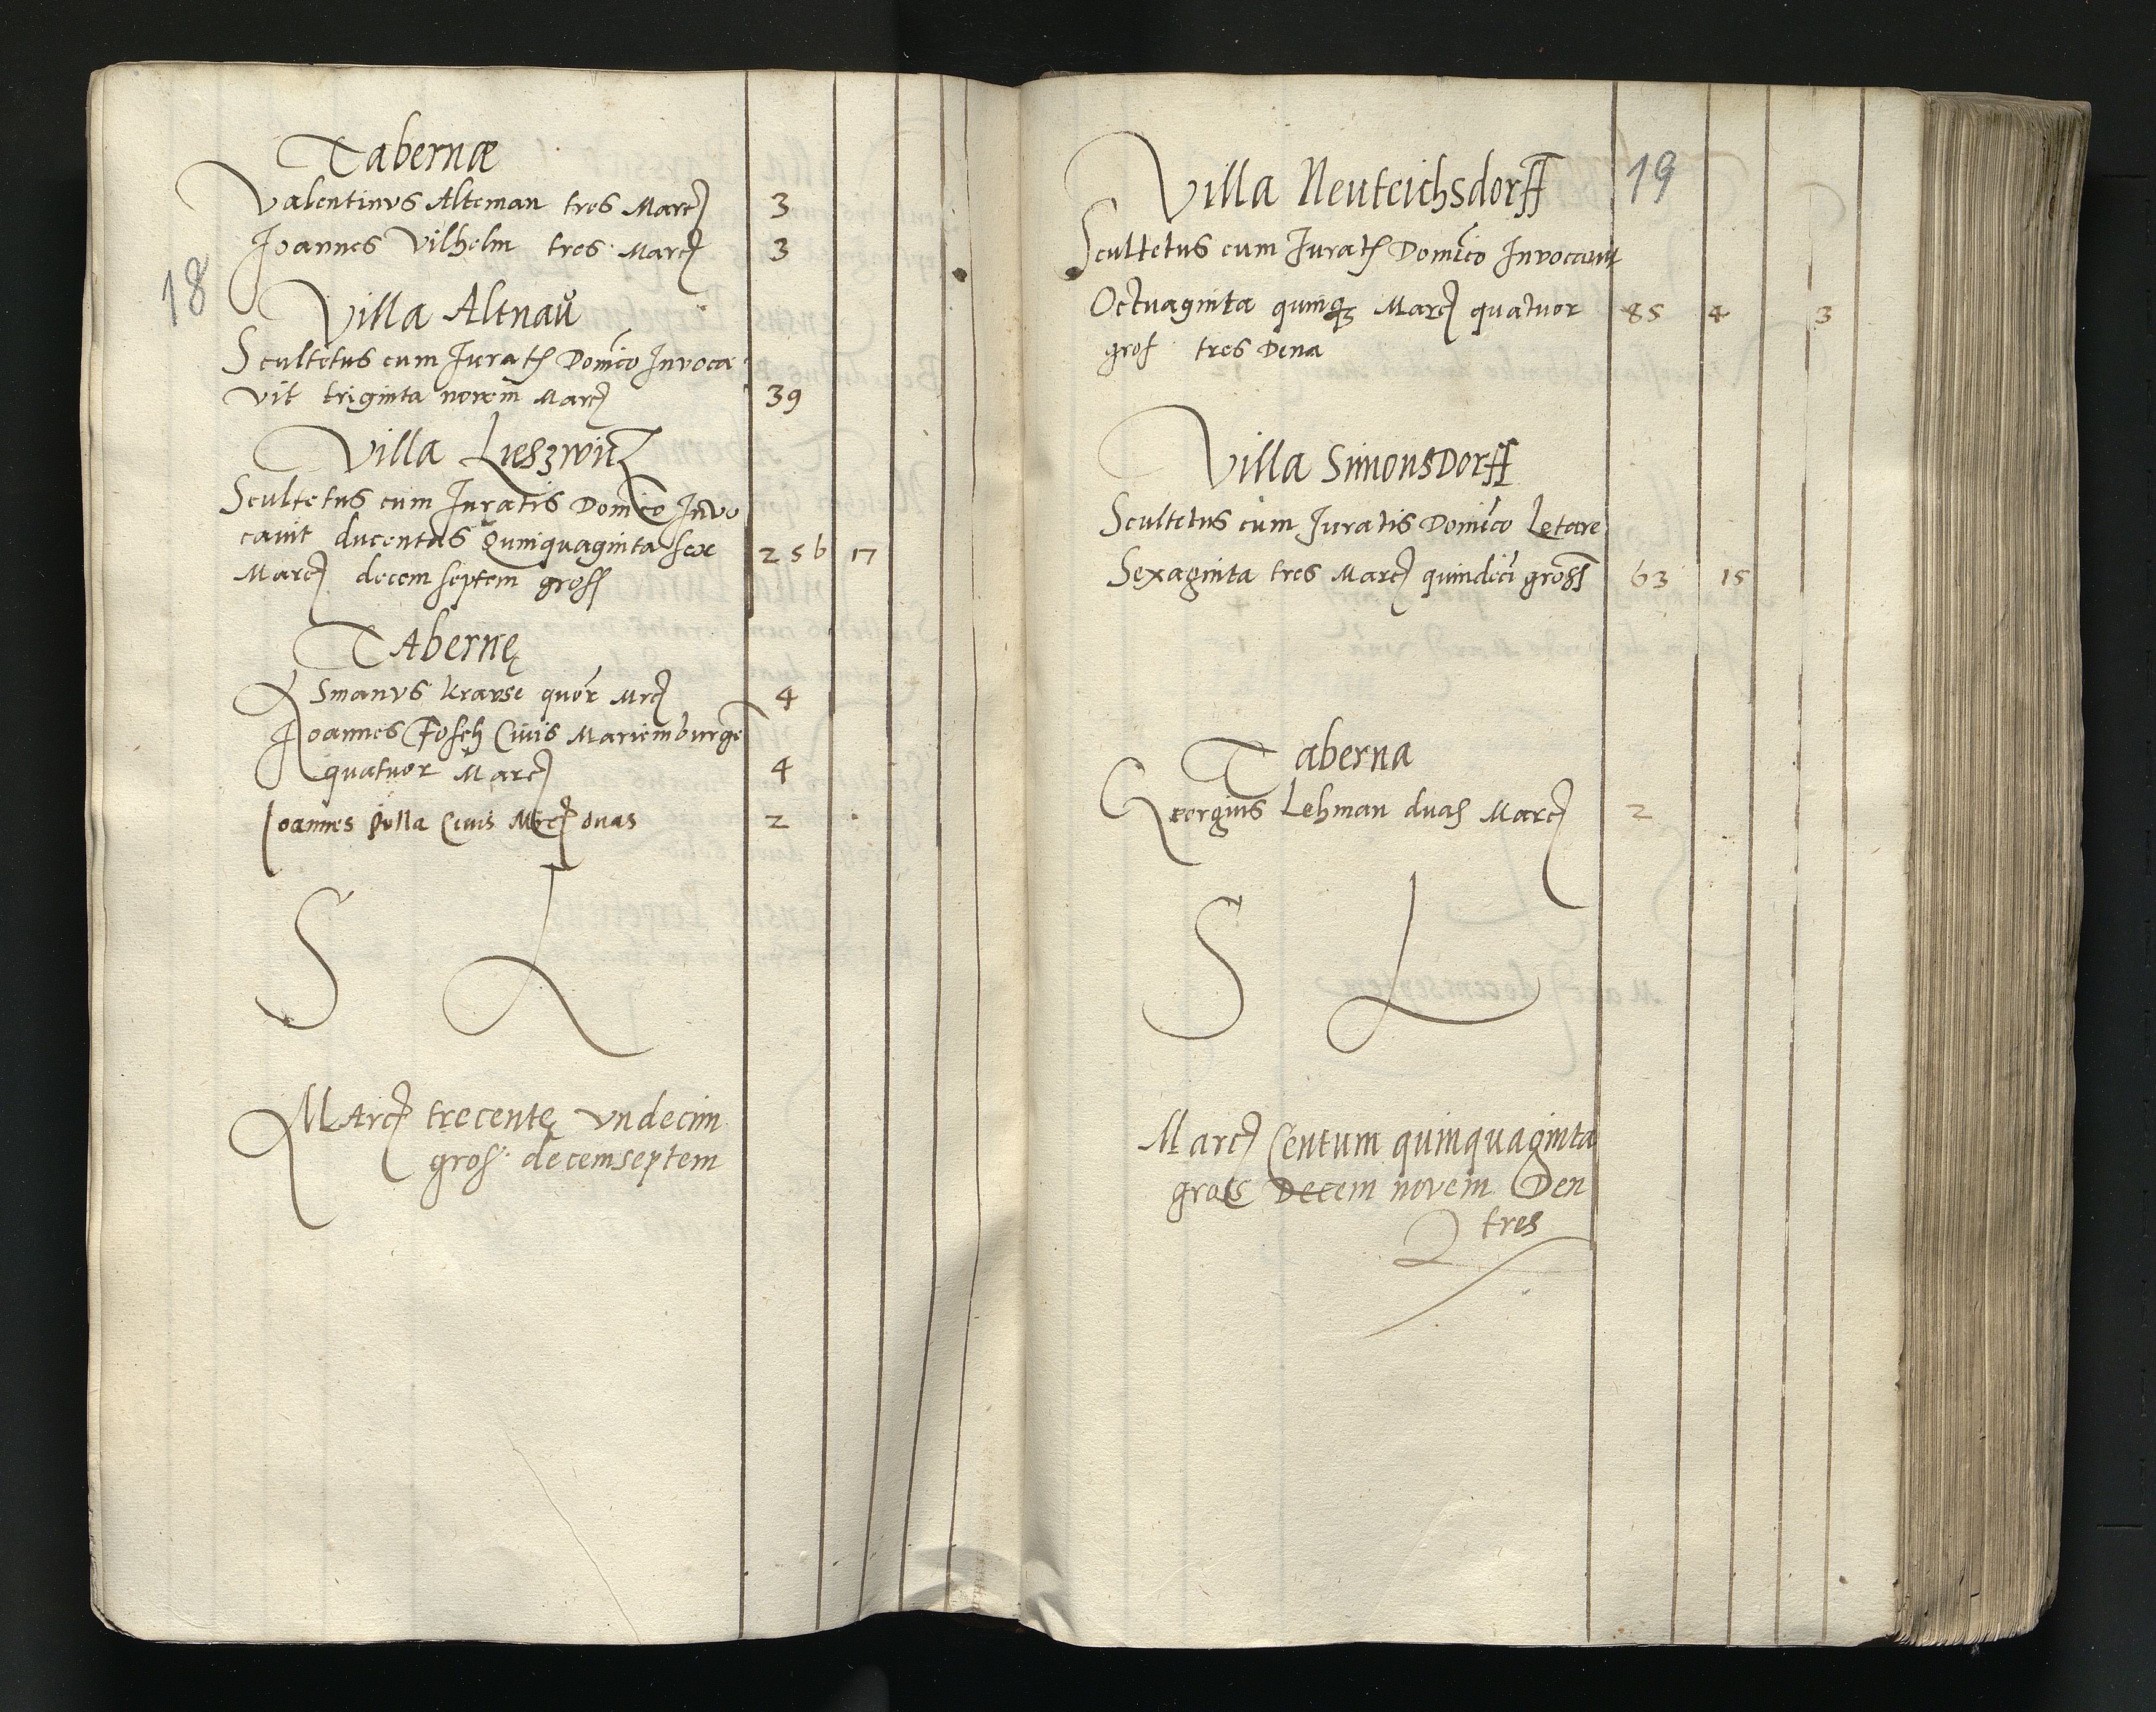 18
Tabernæ
Valentinus Alteman tres Marc 3
Joannes Vilhelm tres Marc 3
Villa Altnaŭ
Scultetus cum Jurat Domico Invoca
vit triginta novem Marc 39
Villa Lieszwitz
Scultetus cum Juratis Domico Invo
cavit ducentas Quinquaginta sex 256 17
Marc decem septem gross
TAbernę
Osmanus Krause quor Mrc 4
Joannes Fosch Civis Mariemburgē
quatuor Marc 4
Joannes Polla Civis Mrc duas 2
S L
MArc trecentę undecim
gros: decemseptem
19
Villa Neuteichsdorff
Scultetus cum Jurat Domico Invocavit
Octuaginta quinqꝫ Marc quatuor 85 4 3
gros tres Dena
Villa SimonsDorff
Scultetus cum Juratis Domico Letare
Sexaginta tres Marc quindeci gross 63 15
Taberna
Georgius Lehman duas Marc 2
S L
Marc Centum quinquaginta
gros Decem novem Den
tres